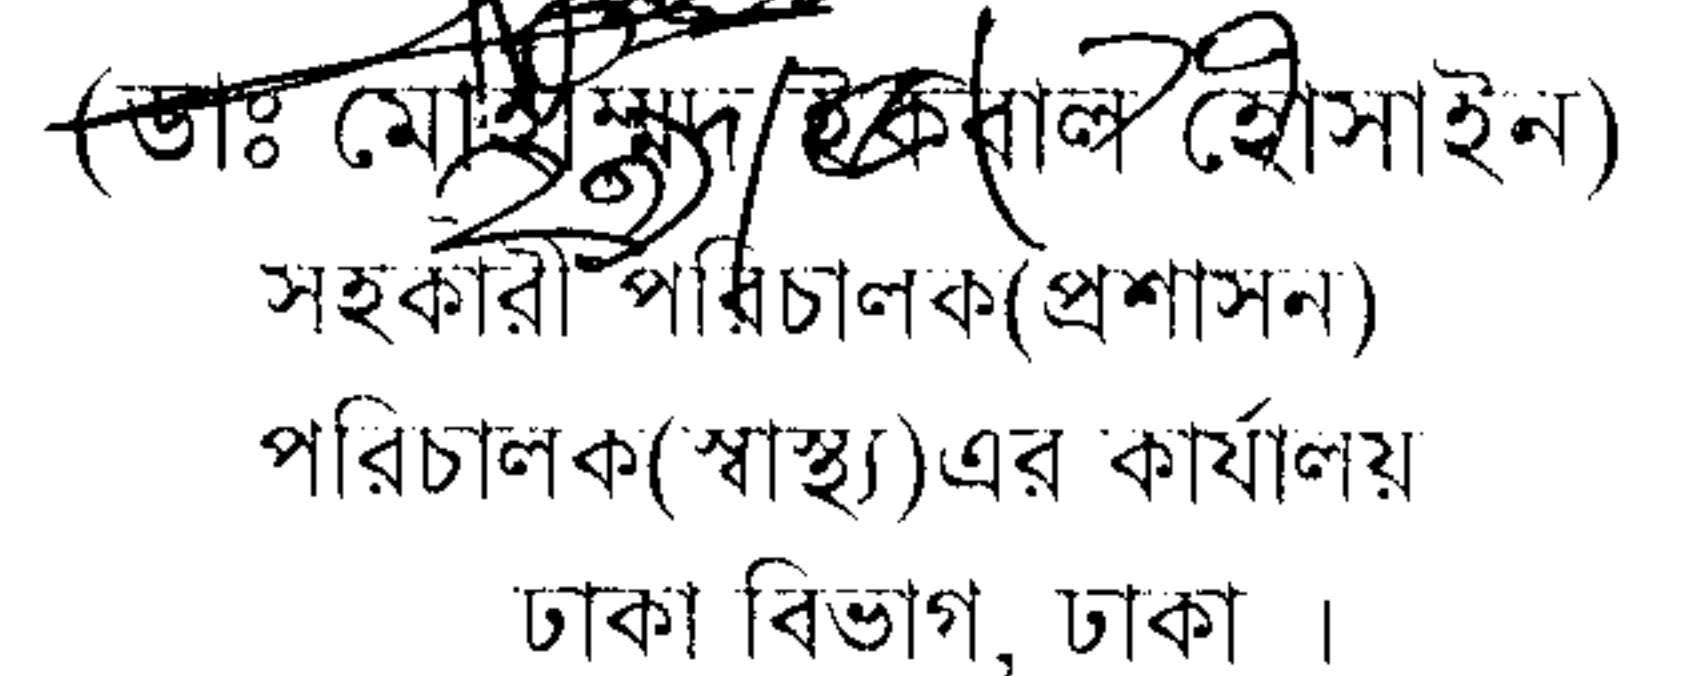 (ডাঃ মোহাম্মদ ইকবাল হোসাইন)
সহকারী পরিচালক(প্রশাসন)
পরিচালক(স্বাস্থ্য)এর কার্যালয়
ঢাকা বিভাগ, ঢাকা ।